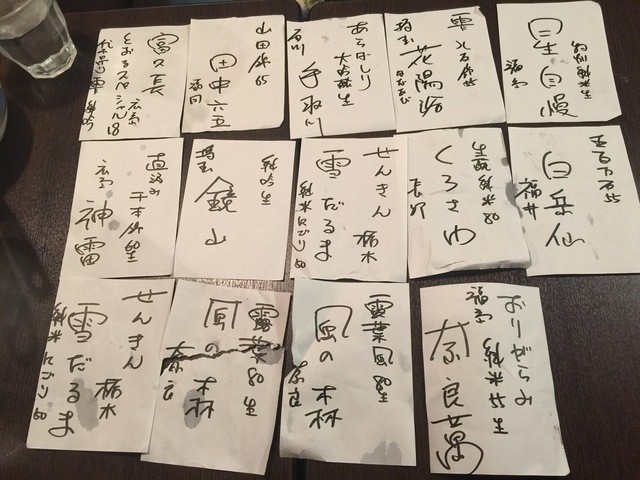 富久長
広島
山田錦65
田中六五
福岡
あらばしり
大吟醸生
石川
手取川
雫
埼玉
花陽浴
純米生
自慢
福島
直汲み
広島
神雷
純吟生
埼玉
鏡山
せんきん
栃木
雪だるま
純米にごり50
生酛純米80
くろさわ
長野
白岳仙
福井
せんきん
栃木
雪だるま
純米にごり50
露葉風80生
風の森
奈良
露葉風80生
風の森
奈良
おりがらみ
純米55生
福島
奈良萬